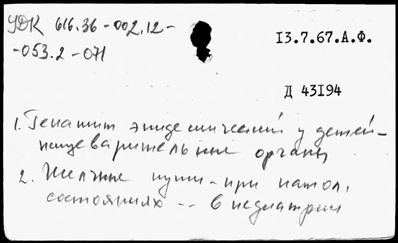 УДК 616.36-002.12-
-053.2-071
13.7.67.А.Ф.
Д 43194
1. Гепатит эпидемический у детей-
пищеварительные органы
2. Желчные пути - при патол.
состояниях -- в педиатрии